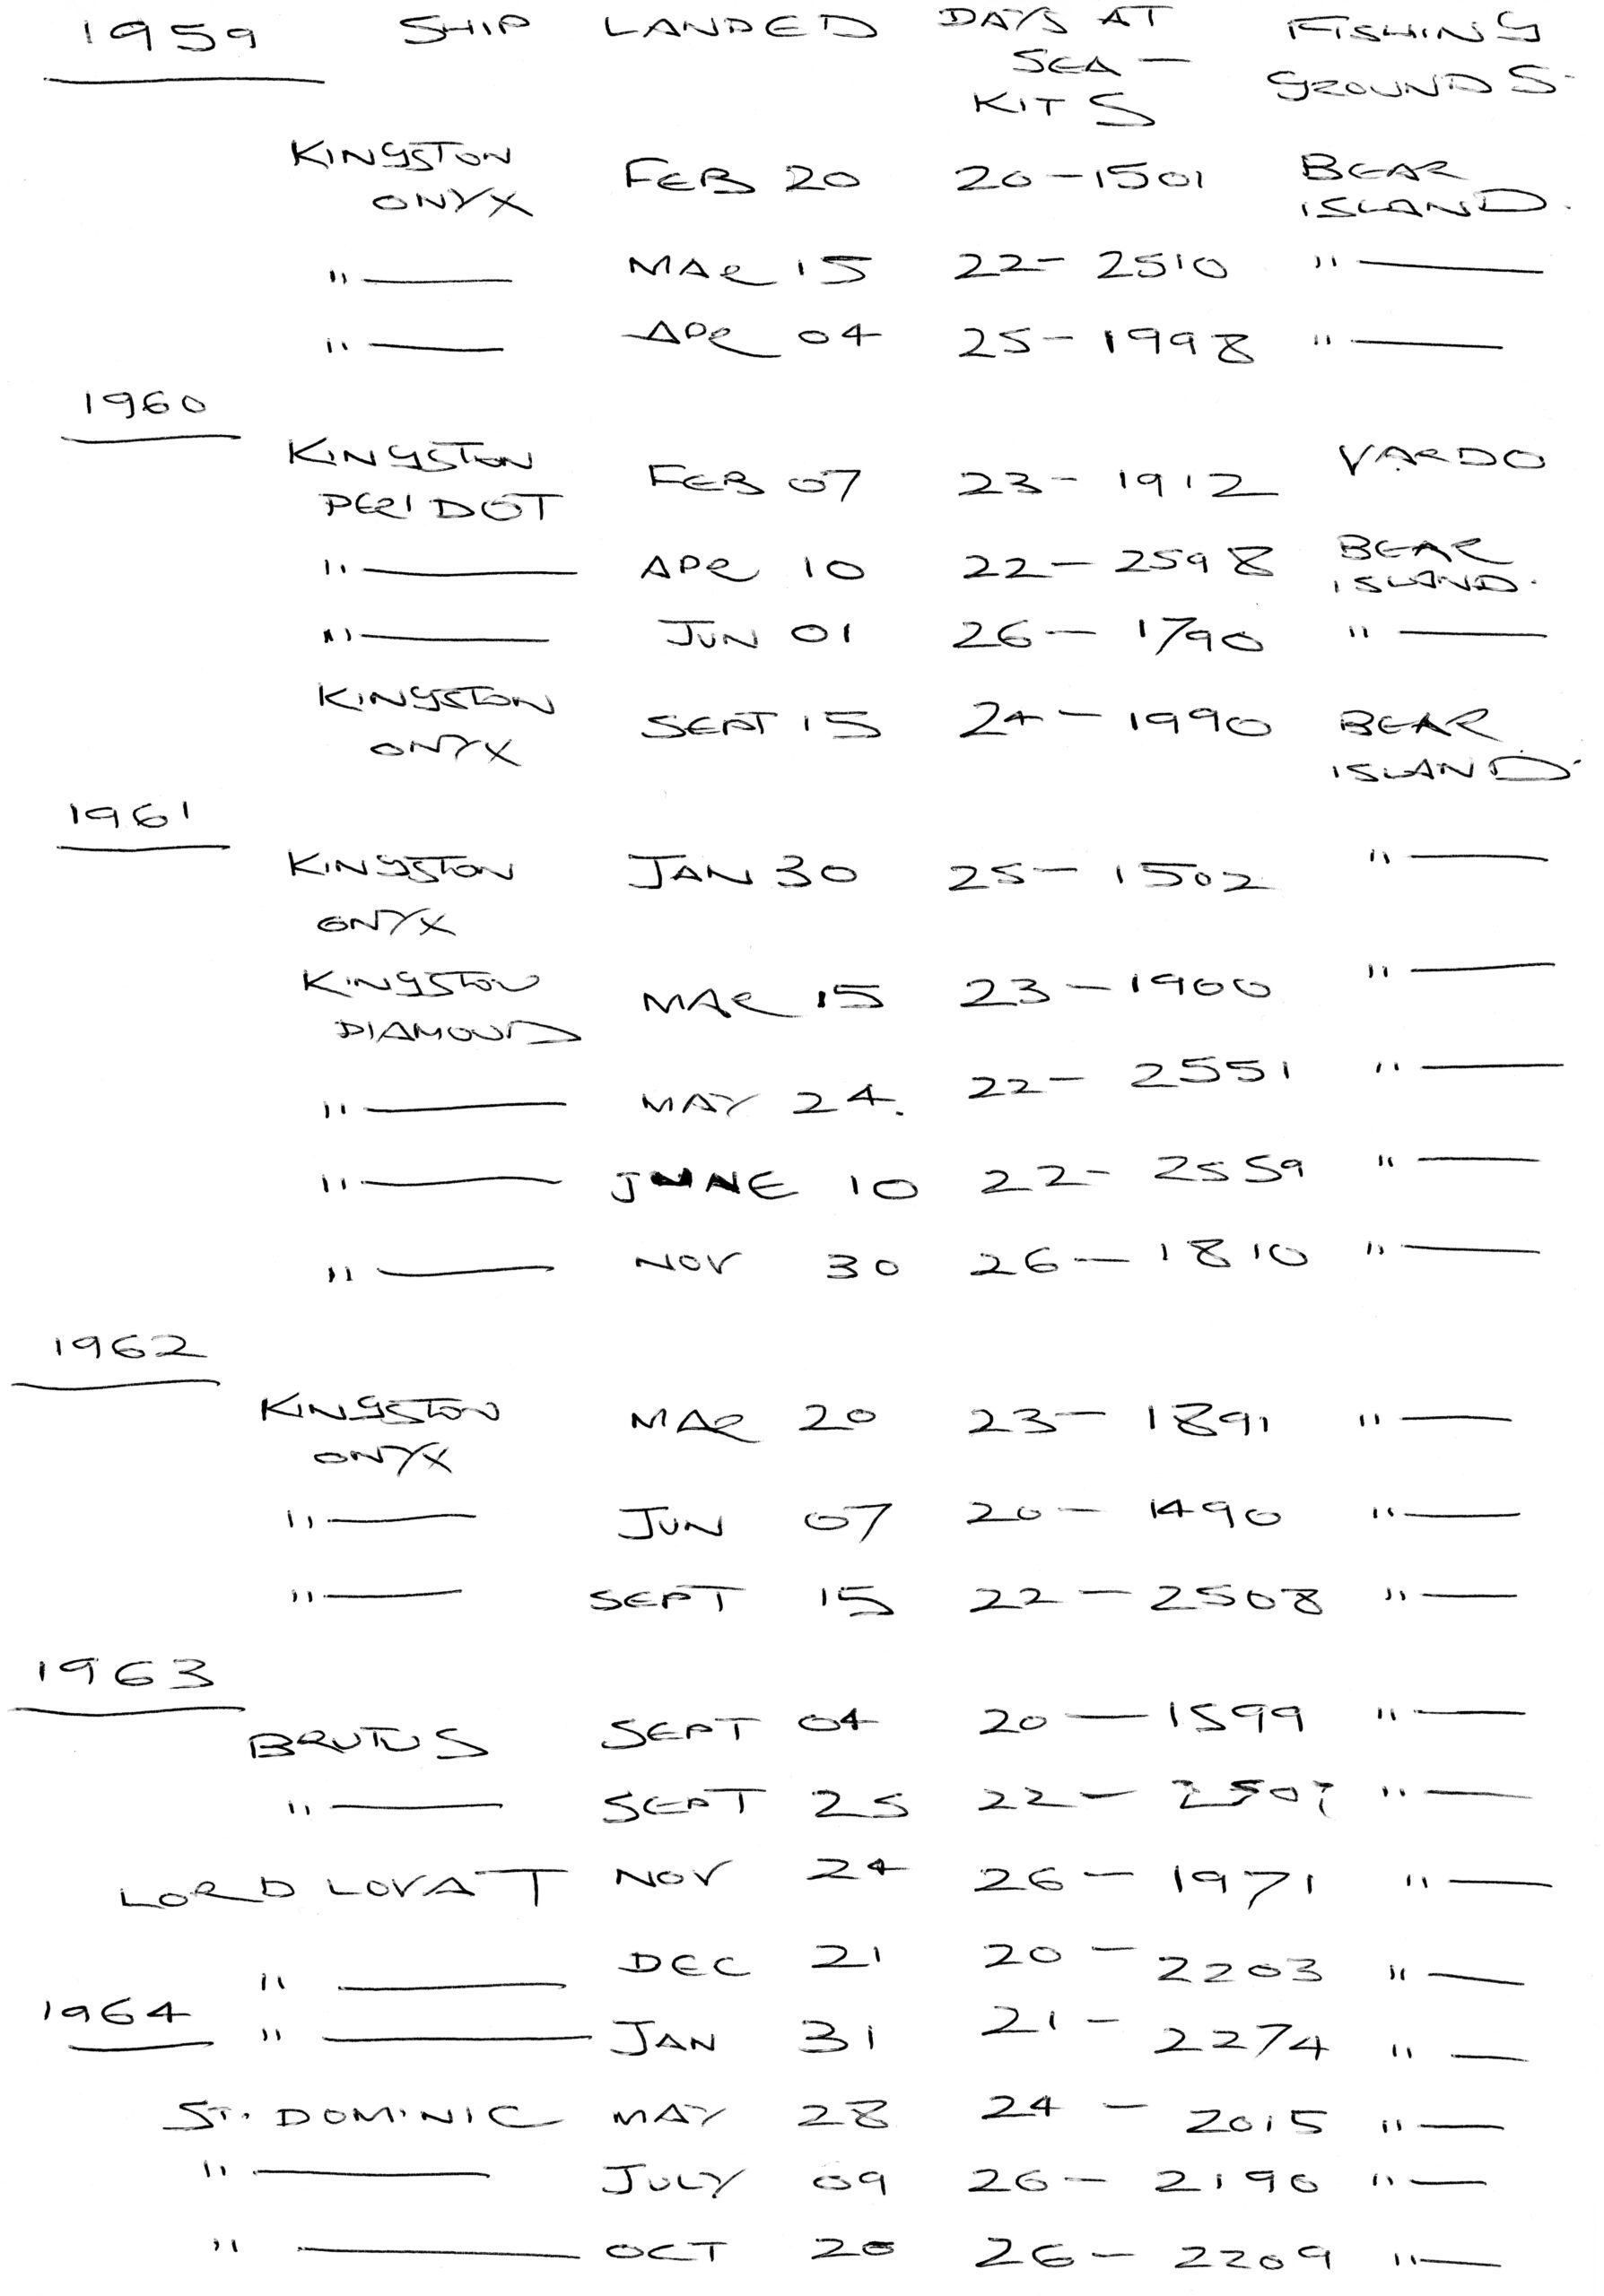 1959 SHIP LANDED DAYS AT SEA — KITS FISHING GROUNDS.
KINGSTON ONYX FEB 20 20 - 1501 BEAR ISLAND.
" — MAR 15 22 - 2510 " —
" — APR 04 25 - 1998 " —
1960
KINGSTON PERIDOT FEB 07 23 - 1912 VARDO
" — APR 10 22 - 2598 BEAR ISLAND.
" — JUN 01 26 - 1790 " —
KINGSTON ONYX SEPT 15 24 - 1990 BEAR ISLAND.
1961
KINGSTON ONYX JAN 30 25 - 1502 " —
KINGSTON DIAMOND MAR 15 23 - 1900 " —
" — MAY 24. 22 - 2551 " —
" — JUNE 10 22 - 2559 " —
" — NOV 30 26 - 1810 " —
1962
KINGSTON ONYX MAR 20 23 - 1891 " —
" — JUN 07 20 - 1490 " —
" — SEPT 15 22 - 2508 " —
1963
BRUTUS SEPT 04 20 — 1599 " —
" — SEPT 25 22 - " —
LORD LOVAT NOV 24 26 - 1971 " —
" — DEC 21 20 - 2203 " —
1964 " — JAN 31 21 - 2274 " —
ST. DOMINIC MAY 28 24 - 2015 " —
" — JULY 09 26 - 2190 " —
" — OCT 20 26 - 2209 " —